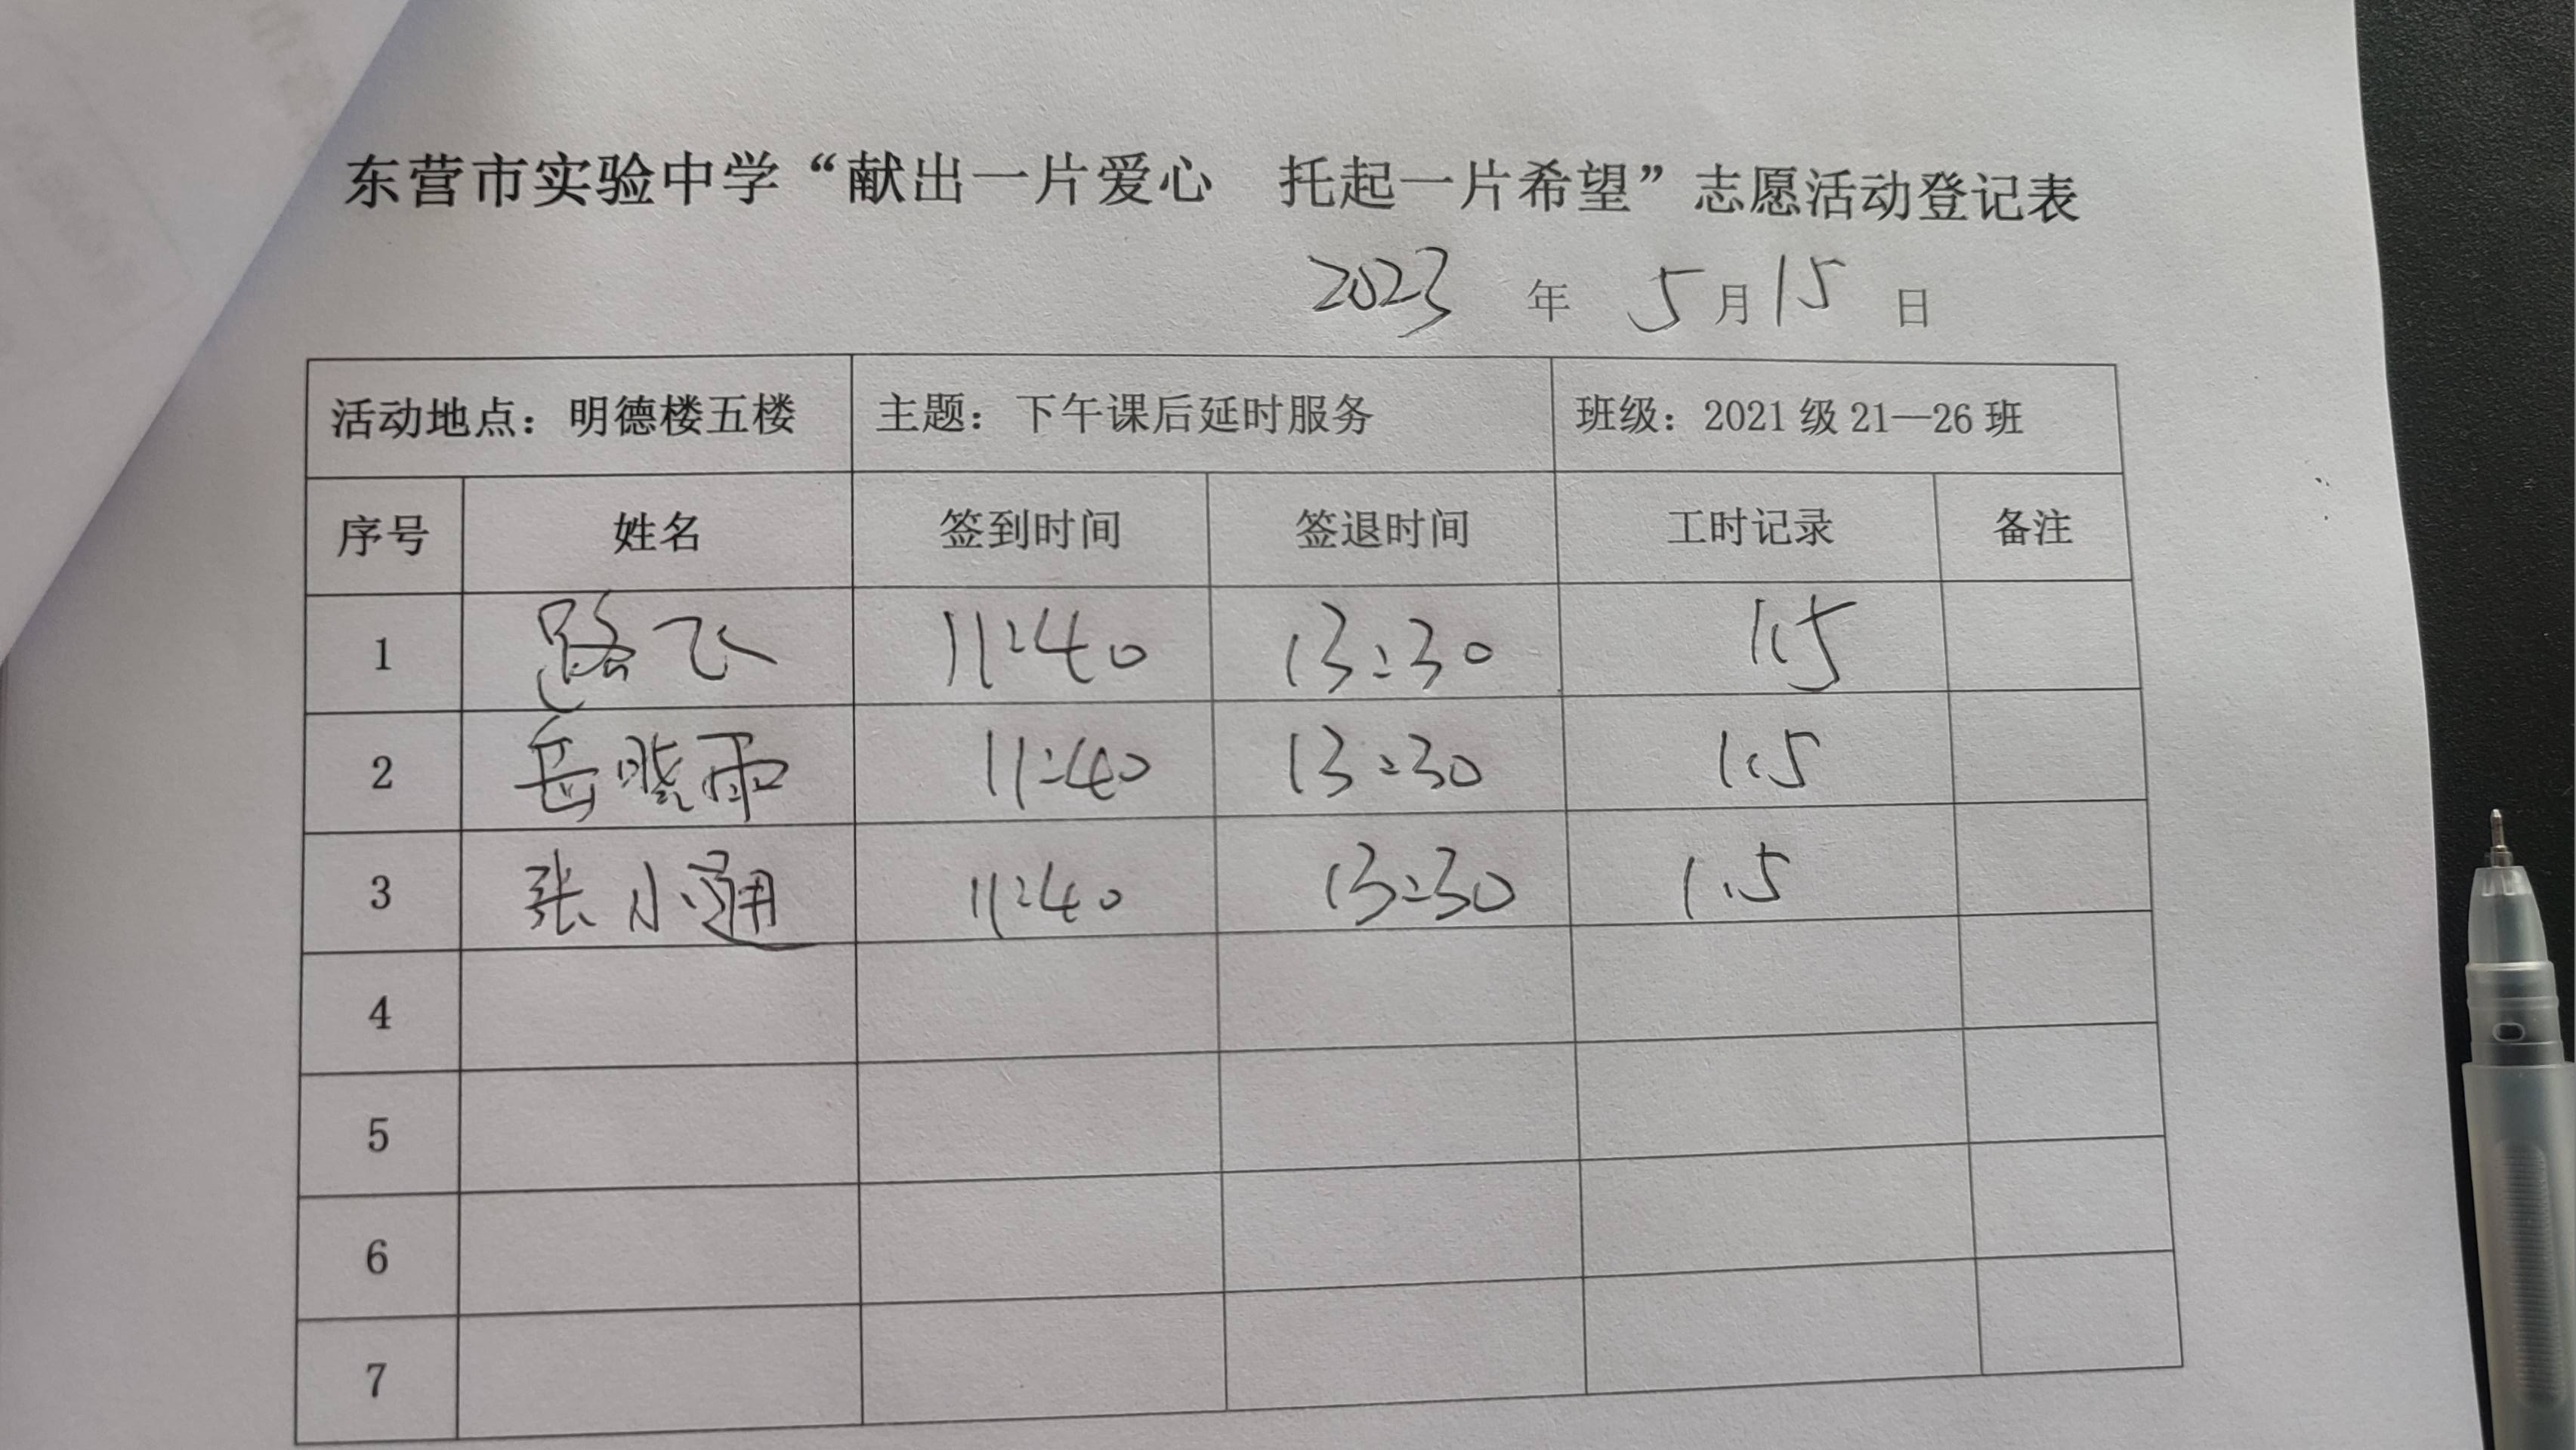 东营市实验中学“献出一片爱心 托起一片希望”志愿活动登记表
2023 年 5 月 15 日
活动地点：明德楼五楼 主题：下午课后延时服务 班级：2021 级 21—26 班
序号 姓名 签到时间 签退时间 工时记录 备注
1 路飞 11:40 13:30 1.5
2 岳晓雨 11:40 13:30 1.5
3 张小通 11:40 13:30 1.5
4
5
6
7